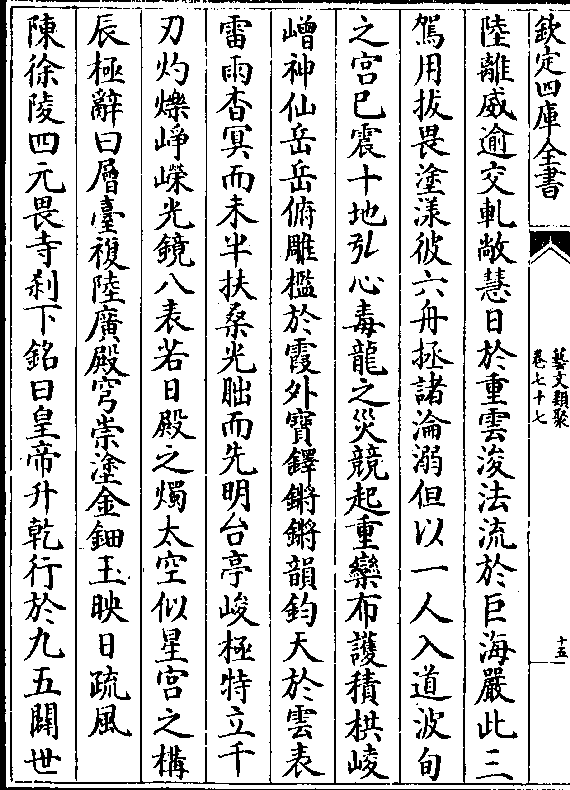 欽定四庫全書
藝文類聚
卷七十七
十五
陸離威逾交軋敞慧日於重雲浚法流於巨海嚴此三
駕用拔畏塗漾彼六舟拯諸淪溺但以一人入道波旬
之宫已震十地弘心毒龍之災競起重欒布護積栱崚
嶒神仙岳岳俯雕檻於霞外寳鐸鏘鏘韻鈞天於雲表
雷雨杳冥而未半扶桑光朏而先明台亭峻極特立千
刃灼爍崢嶸光鏡八表若日殿之燭太空似星宫之構
辰極辭曰層臺複陸廣殿穹崇塗金鈿玉映日疏風
陳徐陵四元畏寺刹下銘曰皇帝升乾行於九五闢世